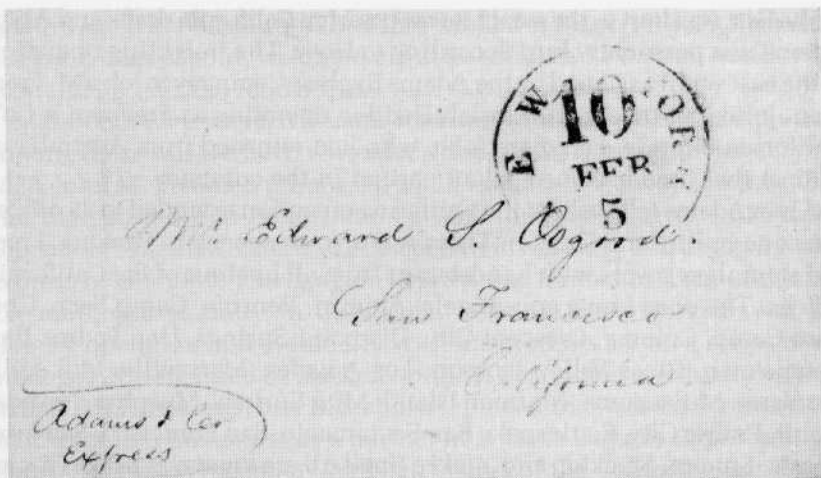 EW YORK
10
FEB
5
Mr. Edward S. Osgood.
San Francisco
California
Adams & Co
Express